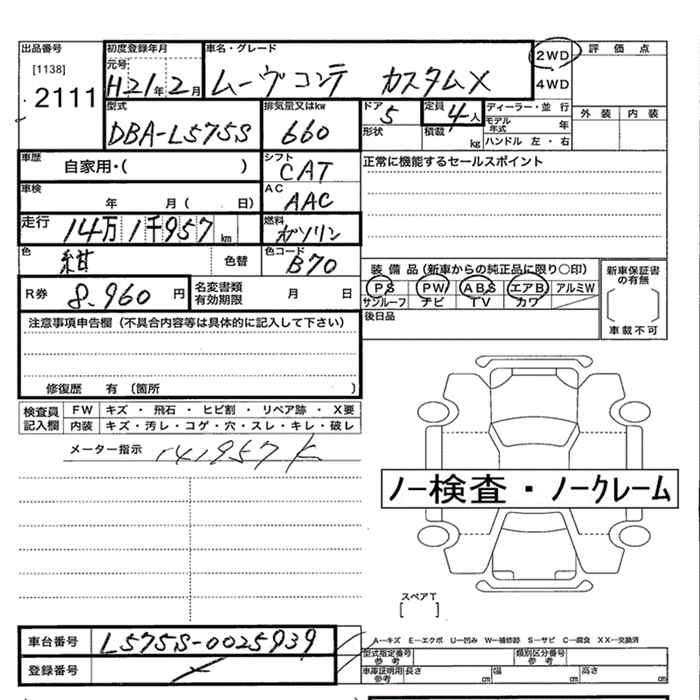 出品番号
[1138]
2111
初度登録年月
元号
H21年 2月
車名・グレード
ムーヴコンテ カスタムX
2WD
4WD
評価点
外装 内装
型式
DBA-L575S
排気量又はkw
660
ドア
5
形状
定員
4人
積載
kg
ディーラー・並行
モデル年式 年
ハンドル 左・右
車歴
自家用・( )
シフト
CAT
正常に機能するセールスポイント
車検
年 月( 日)
AC
AAC
走行
14万1千957km
燃料
ガソリン
色
紺
色替
色コード
B70
装備品(新車からの純正品に限り○印)
PS PW ABS エアB アルミW
サンルーフ ナビ TV カワ
新車保証書の有無
車載不可
R券
8.960円
名変書類有効期限
月 日
後日品
注意事項申告欄(不具合内容等は具体的に記入して下さい)
修復歴 有(箇所 )
検査員記入欄
FW キズ・飛石・ヒビ割・リペア跡・X要
内装 キズ・汚レ・コゲ・穴・スレ・キレ・破レ
メーター指示
141957k
ノー検査・ノークレーム
スペアT
[ ]
車台番号
L575S-0025939
登録番号
A―キズ E―エクボ U―凹み W―補修跡 S―サビ C―腐食 XX―交換済
型式指定番号参考
類別区分番号参考
車庫証明用参考
長さ cm 幅 cm 高さ cm